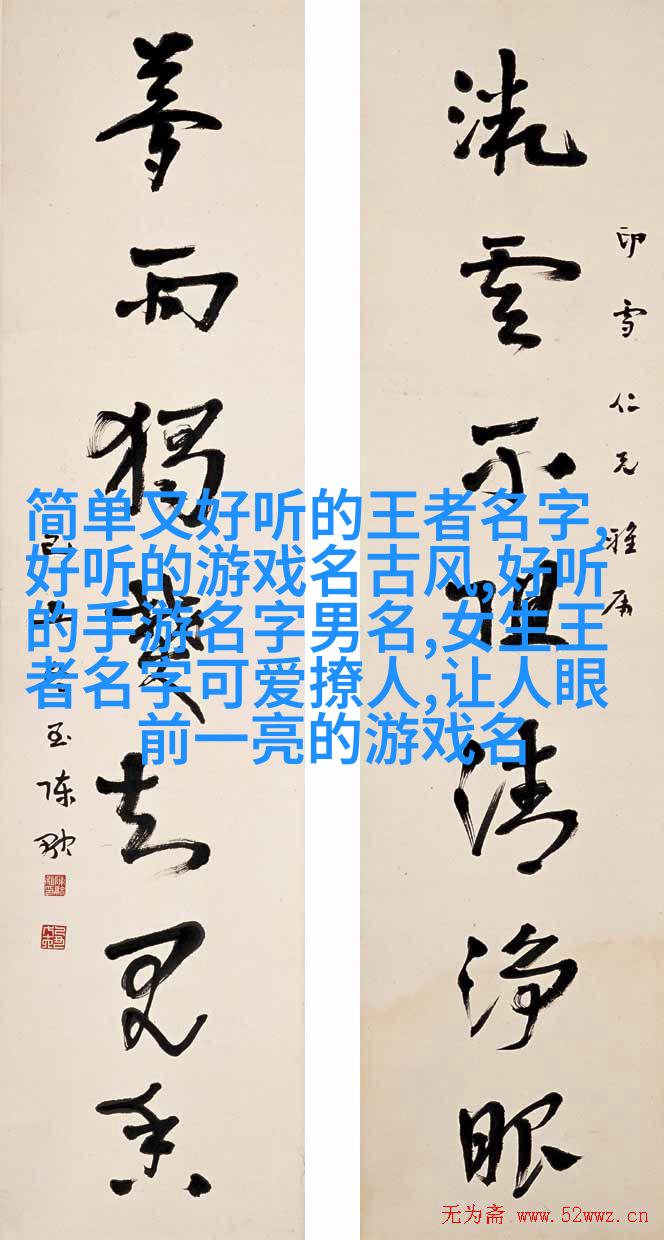 流雲不清淨眼
印雪仁兄雅属
獨知見香
简单又好听的王者名字,
好听的游戏名古风,好听
的手游名字男名,女生王
者名字可爱撩人,让人眼
前一亮的游戏名
无为斋 www.52wwz.cn